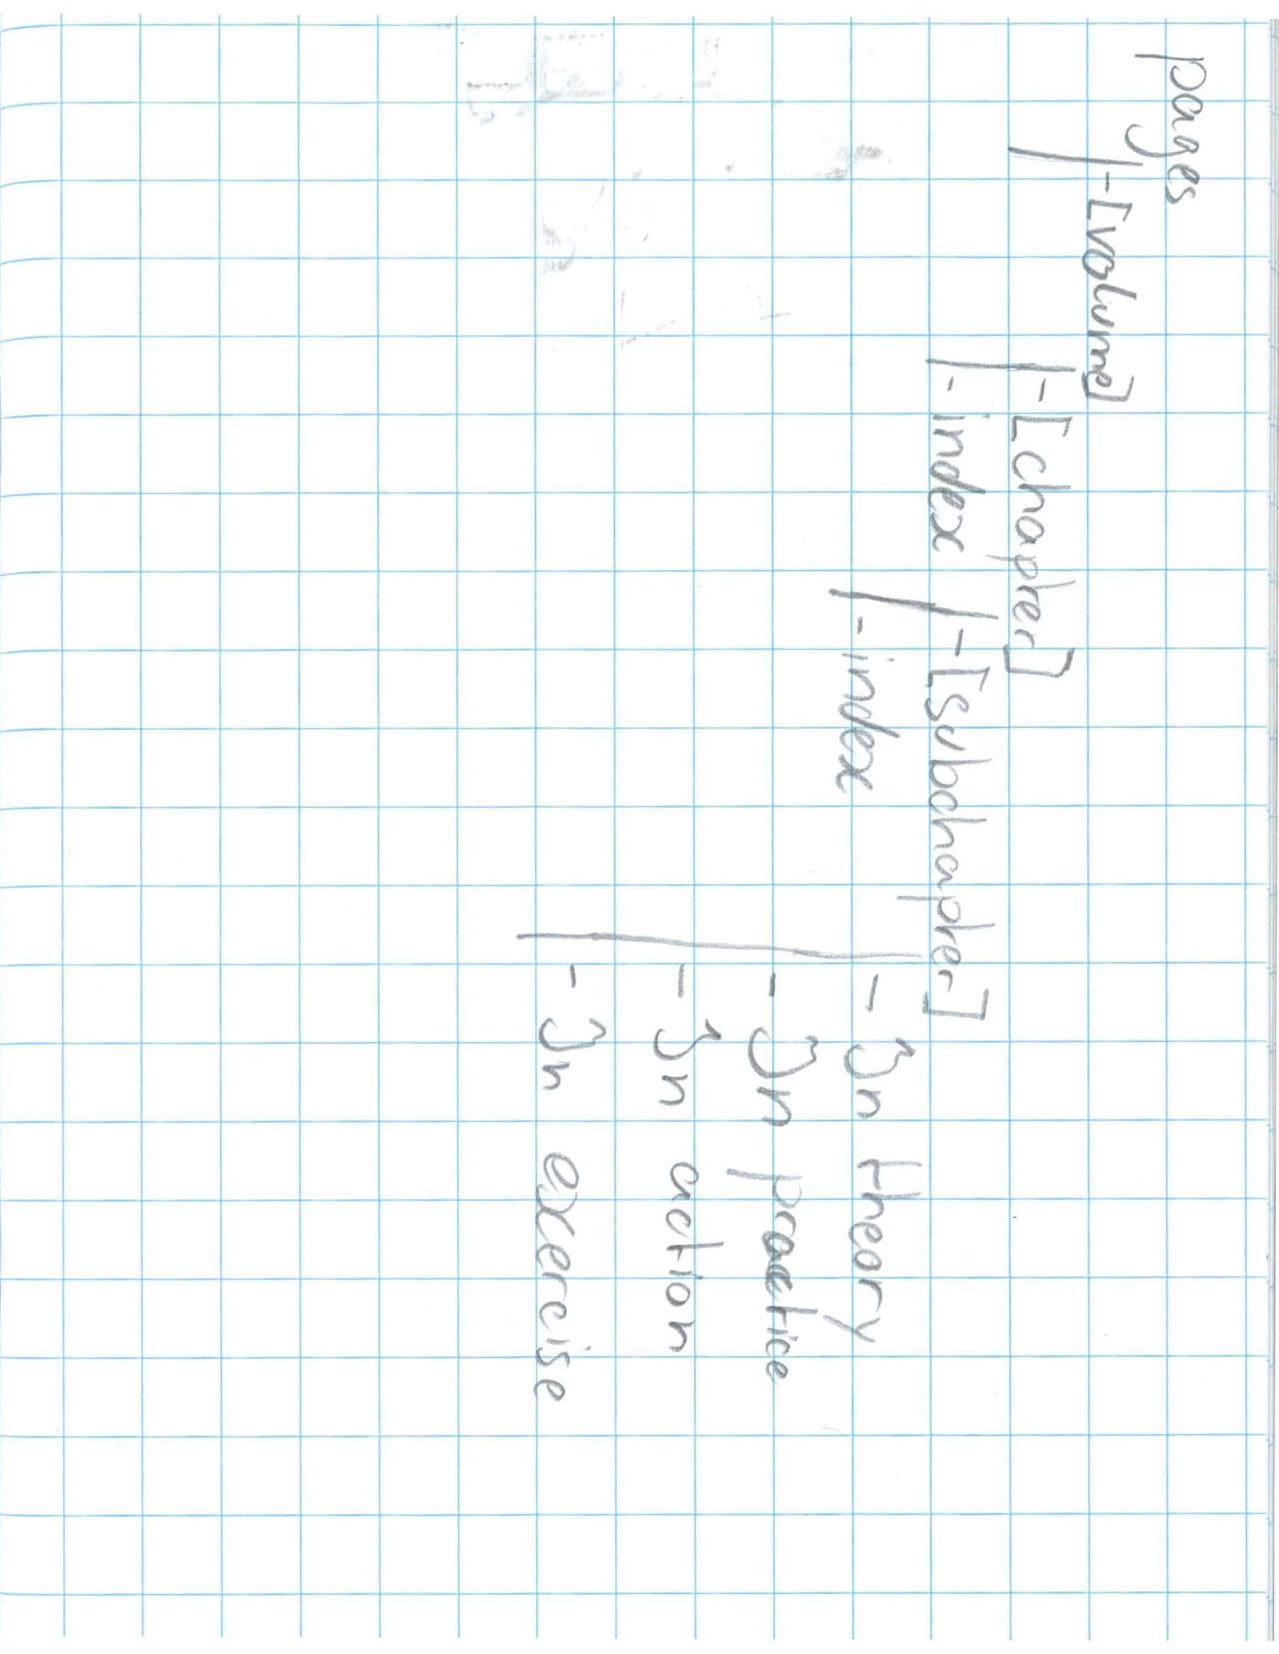 pages
- [volume]
- [chapter]
- index
- [subchapter]
- index
- 3n theory
- 3n practice
- 3n action
- 3n exercise